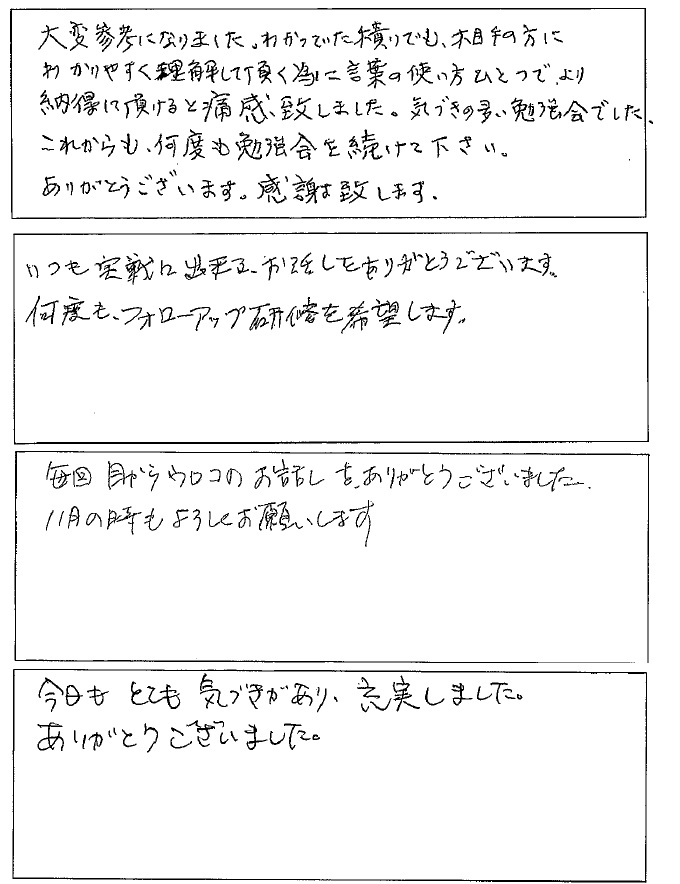 大変参考になりました。わかっていた積りでも、相手の方に
わかりやすく理解して頂く為に言葉の使い方ひとつで、より
納得に頂けると痛感、致しました。気づきの多い勉強会でした。
これからも、何度も勉強会を続けて下さい。
ありがとうございます。感謝致します。
いつも実戦に出来る、お話しをありがとうございます。
何度も、フォローアップ研修を希望します。
毎回 目からウロコのお話しを、ありがとうございました。
11月の時もよろしくお願いします
今日も とても 気づきがあり、充実しました。
ありがとうございました。